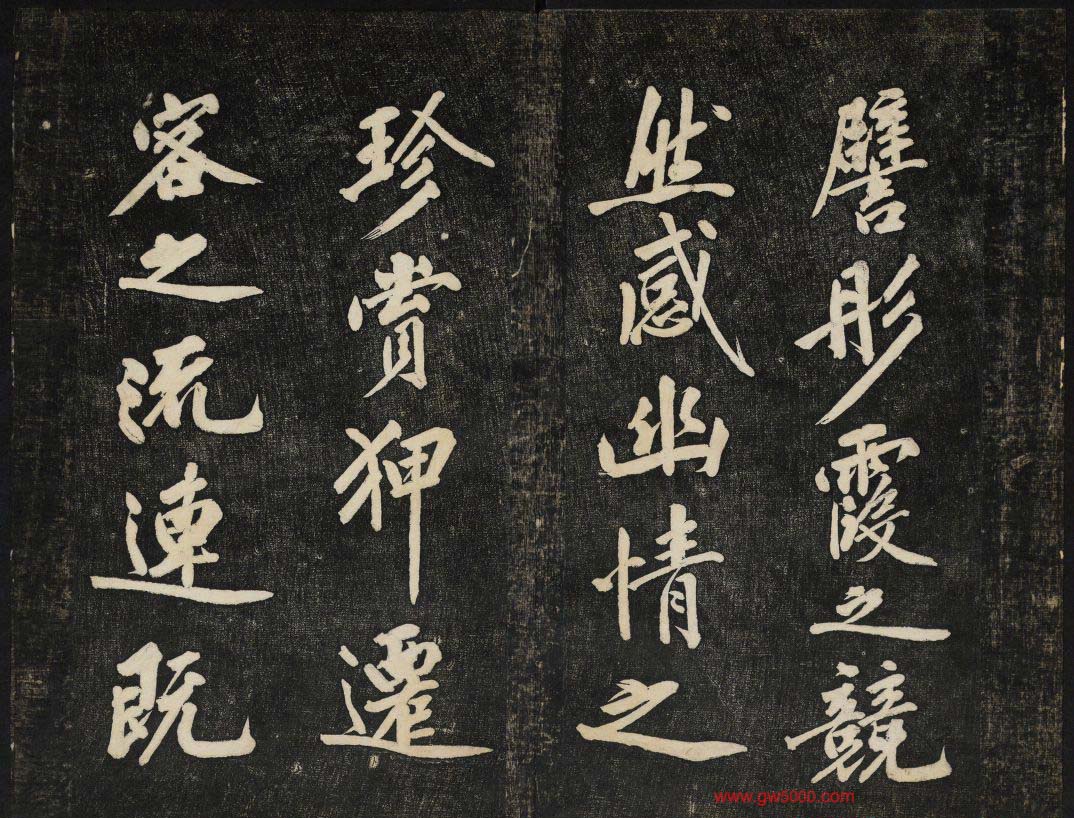 譬彤霞之競
然感幽情之
珍賞狎遷
客之流連既
www.gw5000.com